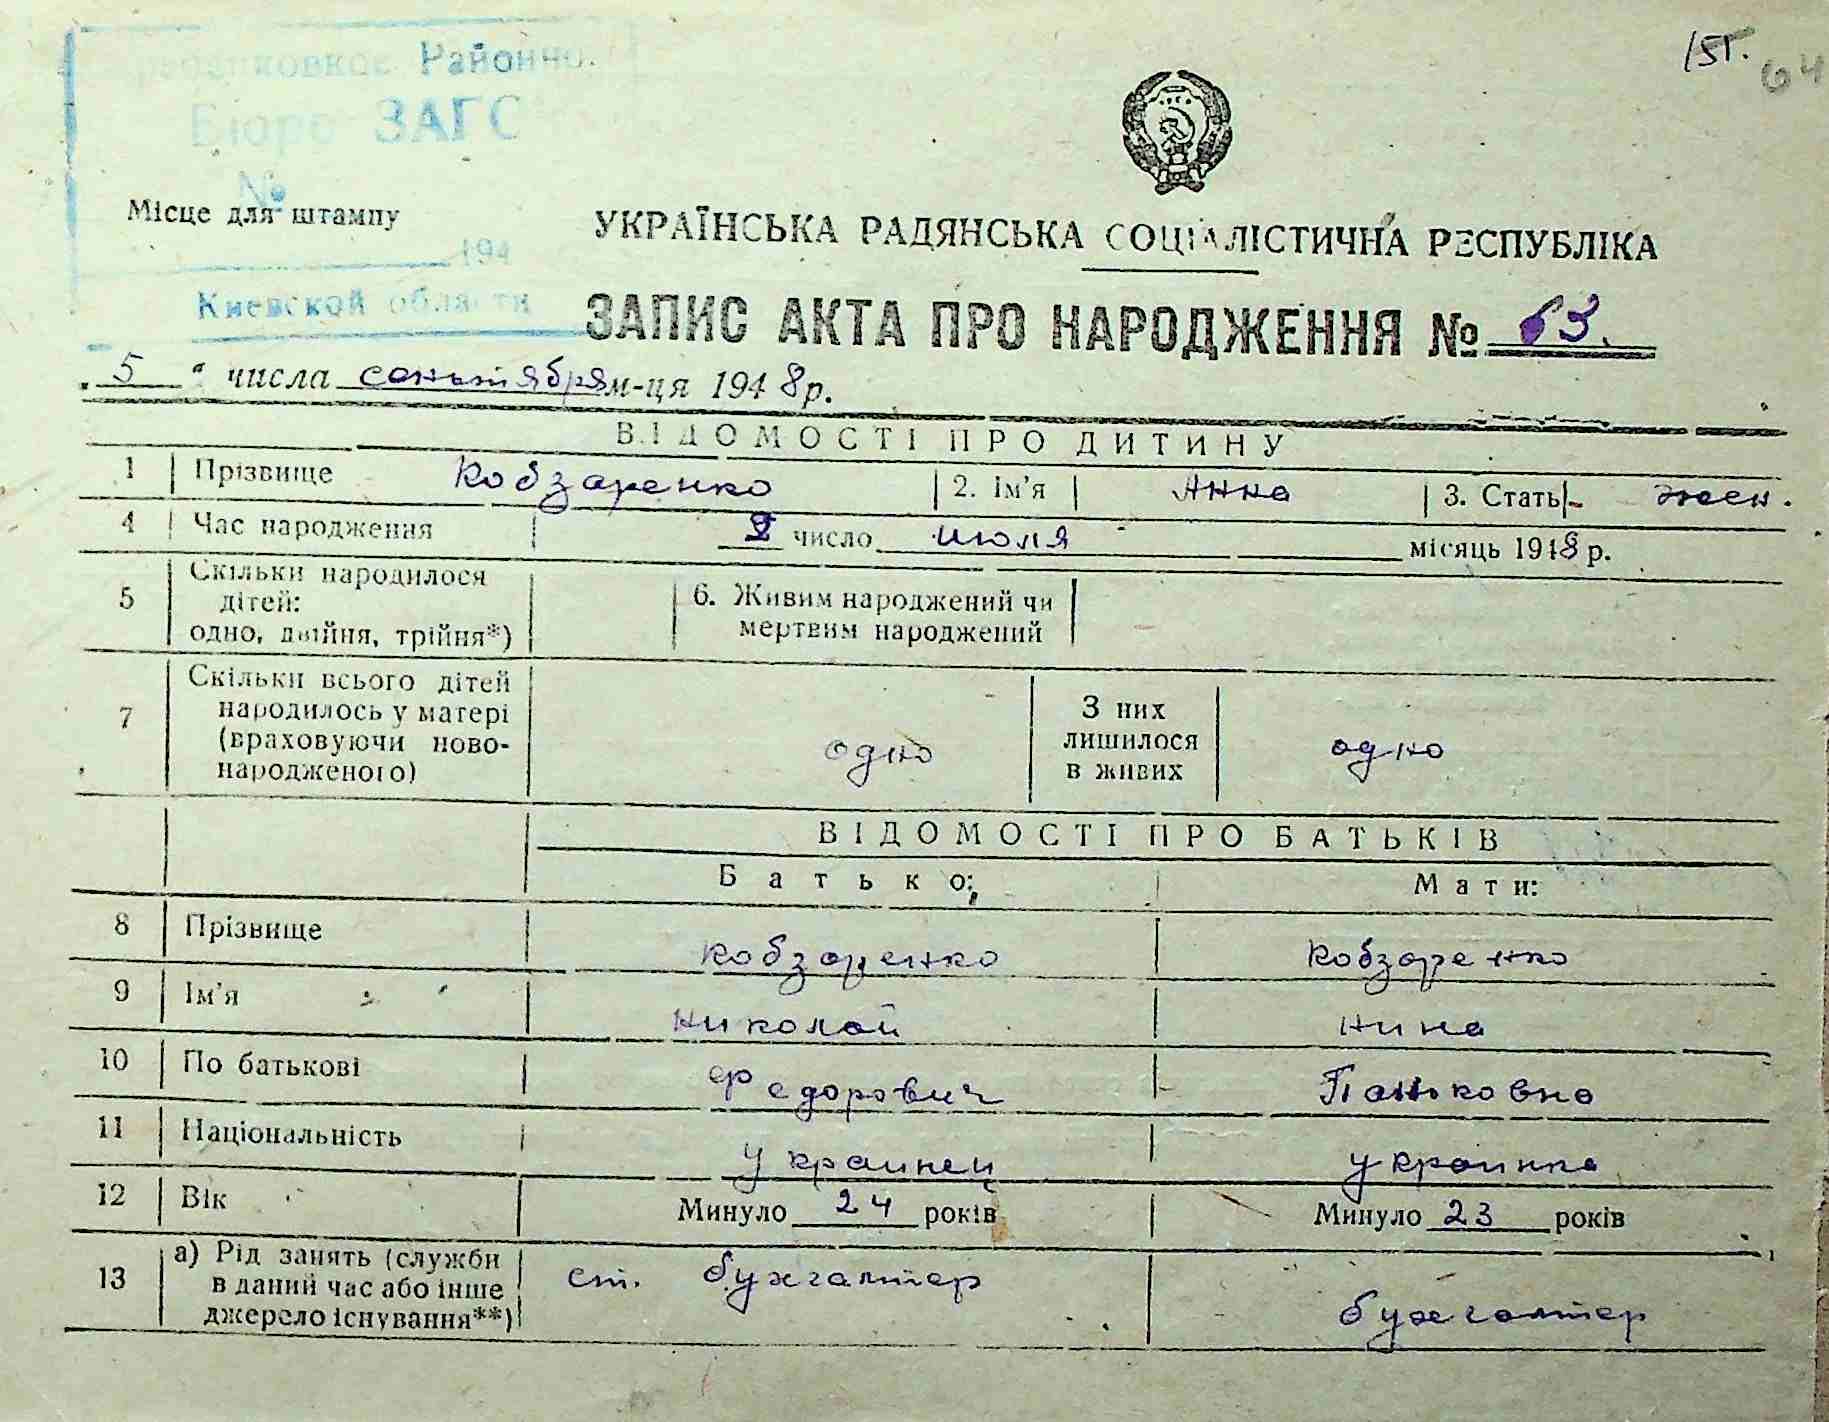 15г. 64
Районно
Бюро ЗАГС
№
Місце для штампу
194
Киевской области
УКРАЇНСЬКА РАДЯНСЬКА СОЦІАЛІСТИЧНА РЕСПУБЛІКА
ЗАПИС АКТА ПРО НАРОДЖЕННЯ № 63.
„5“ числа сентября м-ця 1948 р.
ВІДОМОСТІ ПРО ДИТИНУ
1 Прізвище Кобзаренко 2. Ім'я Анна 3. Стать жен.
4 Час народження число июля місяць 1948 р.
5 Скільки народилося дітей: одно, двійня, трійня*) 6. Живим народжений чи мертвим народжений
7 Скільки всього дітей народилось у матері (враховуючи ново-народженого) одно З них лишилося в живих одно
ВІДОМОСТІ ПРО БАТЬКІВ
Батько: Мати:
8 Прізвище Кобзаренко Кобзаренко
9 Ім'я Николай Нина
10 По батькові Федорович Паньковна
11 Національність украинец украинка
12 Вік Минуло 24 років Минуло 23 років
13 а) Рід занять (служби в даний час або інше джерело існування**) ст. бухгалтер бухгалтер